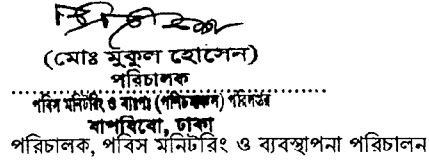 (মোঃ মুকুল হোসেন)
পরিচালক
পবিস মনিটরিং ও ব্যবঃ (পশ্চিমাঞ্চল) পরিদপ্তর
বাপবিবো, ঢাকা
পরিচালক, পবিস মনিটরিং ও ব্যবস্থাপনা পরিচালন